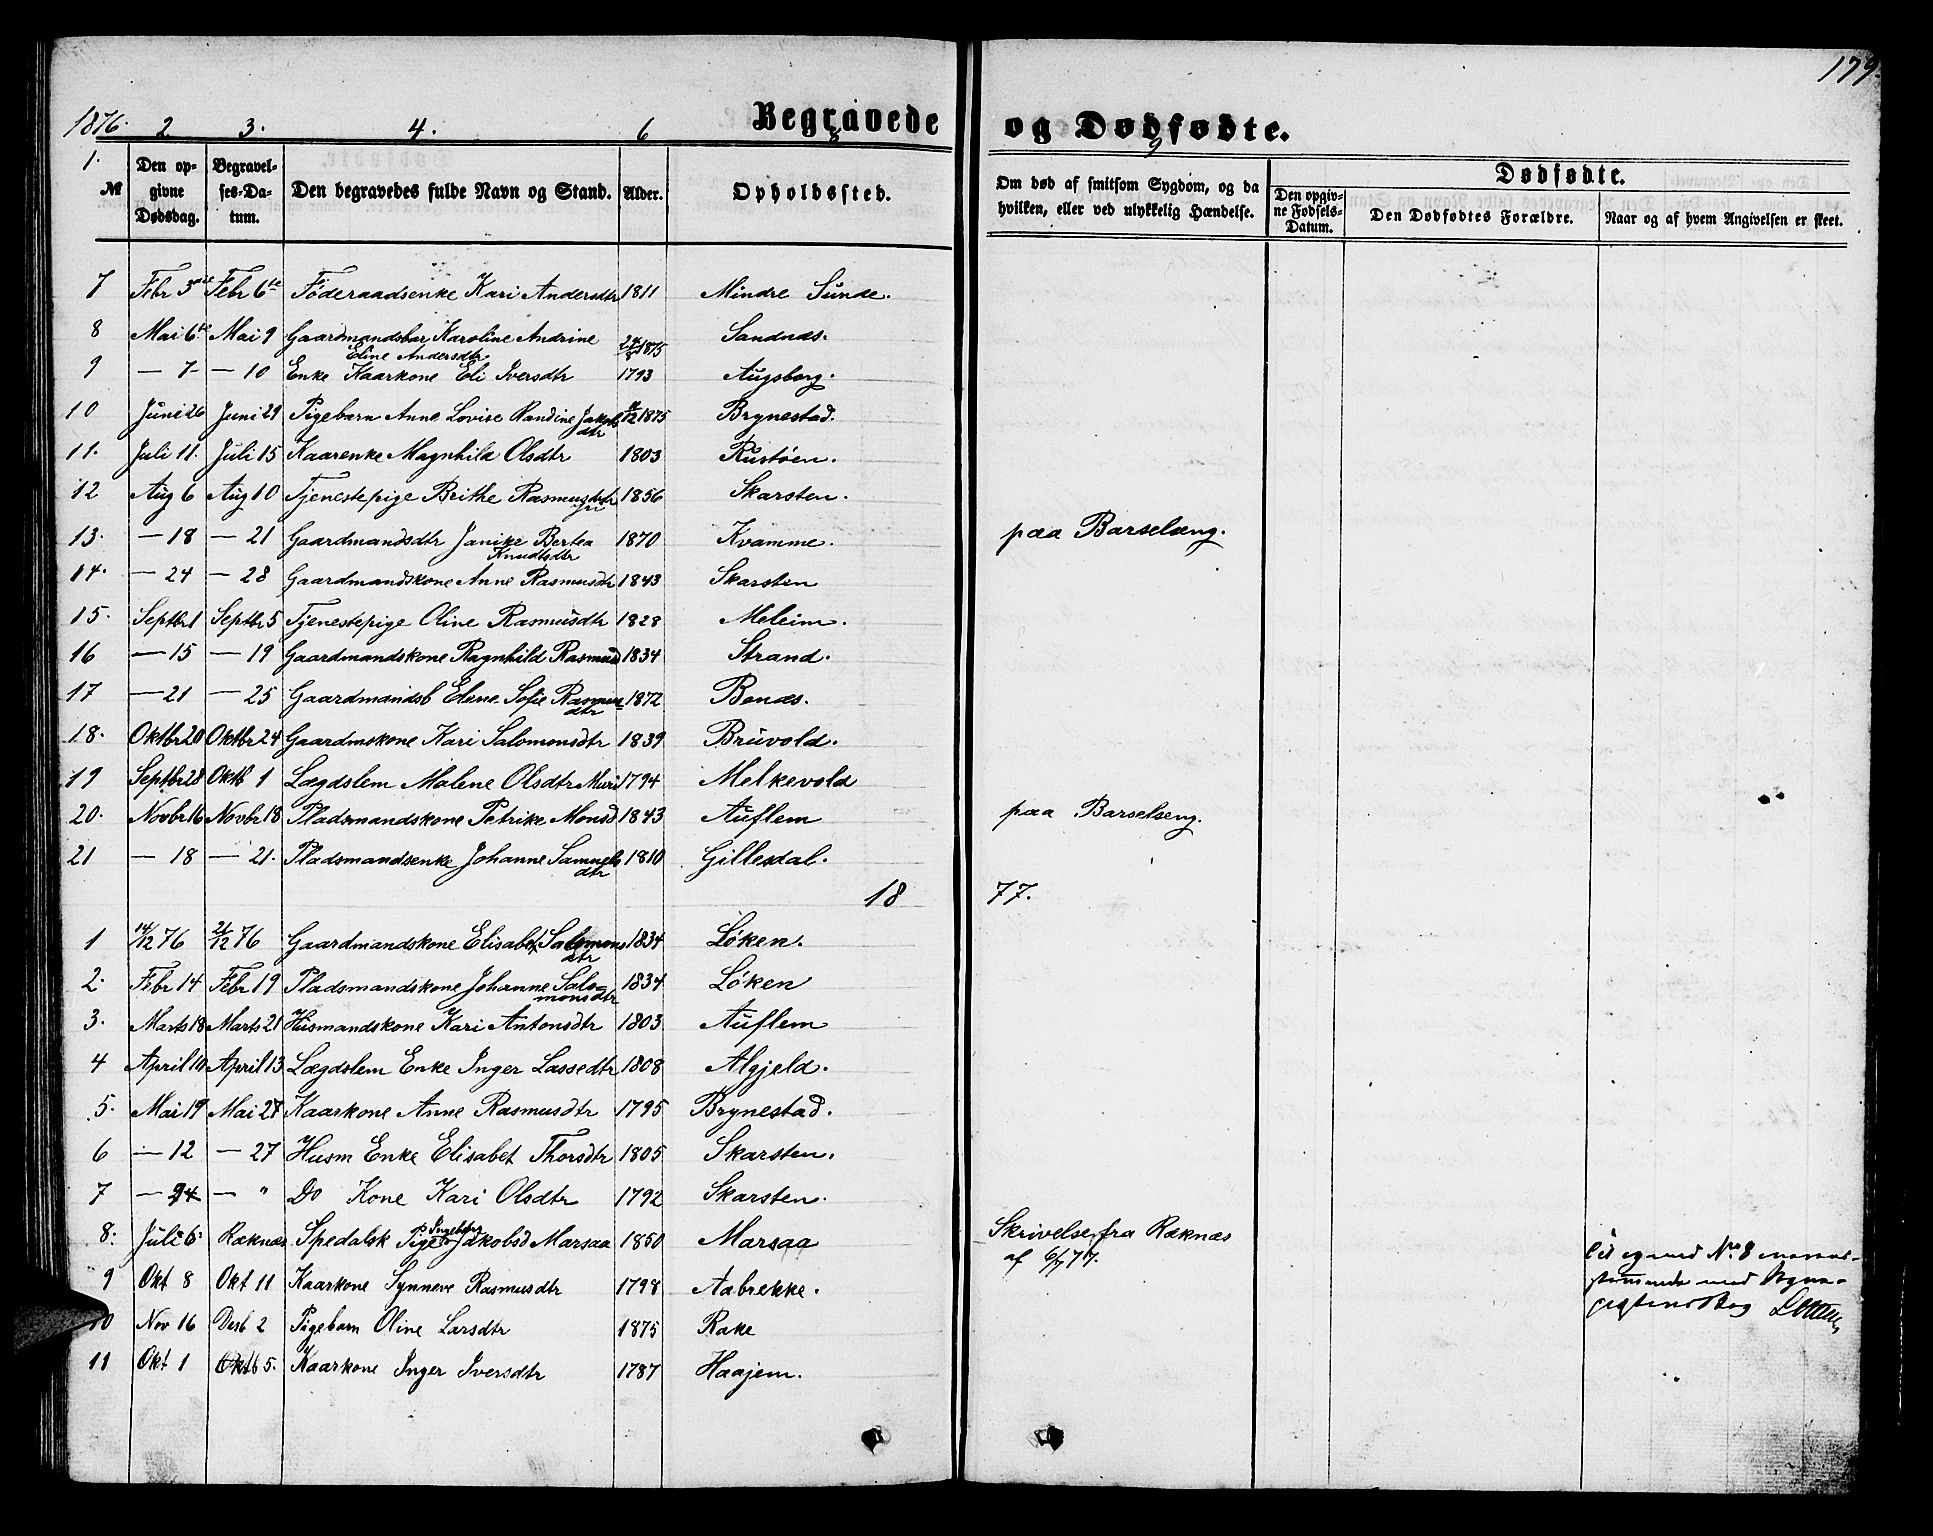 179.
1876. 2 3. 4. 6 8 9
Begravede og Dødfødte.
1.
№ Den opgivne Dødsdag. Begravelses-Datum. Den begravedes fulde Navn og Stand. Alder. Opholdssted. Om død af smitsom Sygdom, og da hvilken, eller ved ulykkelig Hændelse. Dødfødte. Den opgivne Fødsels-Datum. Den Dødfødtes Forældre. Naar og af hvem Angivelsen er skeet.
7 Febr 3 Febr 6te Føderaadsenke Kari Andersdtr 1811 Mindre Sunde.
8 Mai 6te Mai 9 Gaardmandsbar Karoline Andrine Eline Andersdtr 24/8 1875 Sandnæs.
9 — 7 — 10 Enke Kaarkone Eli Iversdtr 1793 Augsborg.
10 Juni 26 Juni 29 Pigebarn Anne Lovise Randine Jakobsdtr /12 1875 Brynestad.
11. Juli 11. Juli 15 Kaarenke Magnhild Olsdtr 1803 Rustøen.
12 Aug 6 Aug 10 Tjenestepige Brithe Rasmusdtr 1856 Skarsten.
13. — 18 — 21 Gaardmandsdtr Janike Bertea Knudtsdtr 1870 Kvamme. paa Barselseng.
14. — 24 — 28 Gaardmandskone Anne Rasmusdtr 1843 Skarsten
15. Septbr 1 Septbr 5 Tjenestepige Oline Rasmusdtr 1828 Meleim.
16 — 15 — 19 Gaardmandskone Ragnhild Rasmusd 1834 Strand.
17 — 21 — 25 Gaardmandsb Elene Sofie Rasmusdtr 1872 Benæs.
18. Oktbr 20 Oktbr 24 Gaardmskone Kari Salomonsdtr 1839 Bruvold.
19 Septbr 28 Oktb 1 Lægdslem Malene Olsdtr Muri 1794 Melkevold
20. Novbr 16 Novbr 18 Pladsmandskone Petrike Monsd 1843 Auflem paa Barselseng.
21 — 18 — 21. Pladsmandsenke Johanne Samuelsdtr 1810 Gillesdal.
18 77.
1 14/12 76 21/12 76 Gaardmandskone Elisabet Salomonsdtr 1834 Løken.
2. Febr 14 Febr 19 Pladsmandskone Johanne Salomonsdtr 1834 Løken
3. Marts 18 Marts 21 Husmandskone Kari Antonsdtr 1803 Auflem
4 April 10 April 13 Lægdslem Enke Inger Lassedtr 1808 Algjeld.
5. Mai 19 Mai 27 Kaarkone Anne Rasmusdtr 1795 Brynestad.
6 — 12 — 27 Husm Enke Elisabet Thorsdtr 1805 Skarsten.
7 — 24 — " Do Kone Kari Olsdtr 1792 Skarsten.
8. Juli 6 Ræknæs Spedalsk Pige Ingeborg Jakobsd Marsaa 1850 Marsaa Skrivelse fra Ræknæs af 6/7 77.
9 Okt 8 Okt 11 Kaarkone Synneve Rasmusdtr 1798 Aabrekke. Til og med No 8 overensstemmende med
10 Nov 16 Desb 2 Pigebarn Oline Larsdtr 1875 Rake
11 Okt 1 Oktb 5. Kaarkone Inger Iversdtr 1787 Haajem.